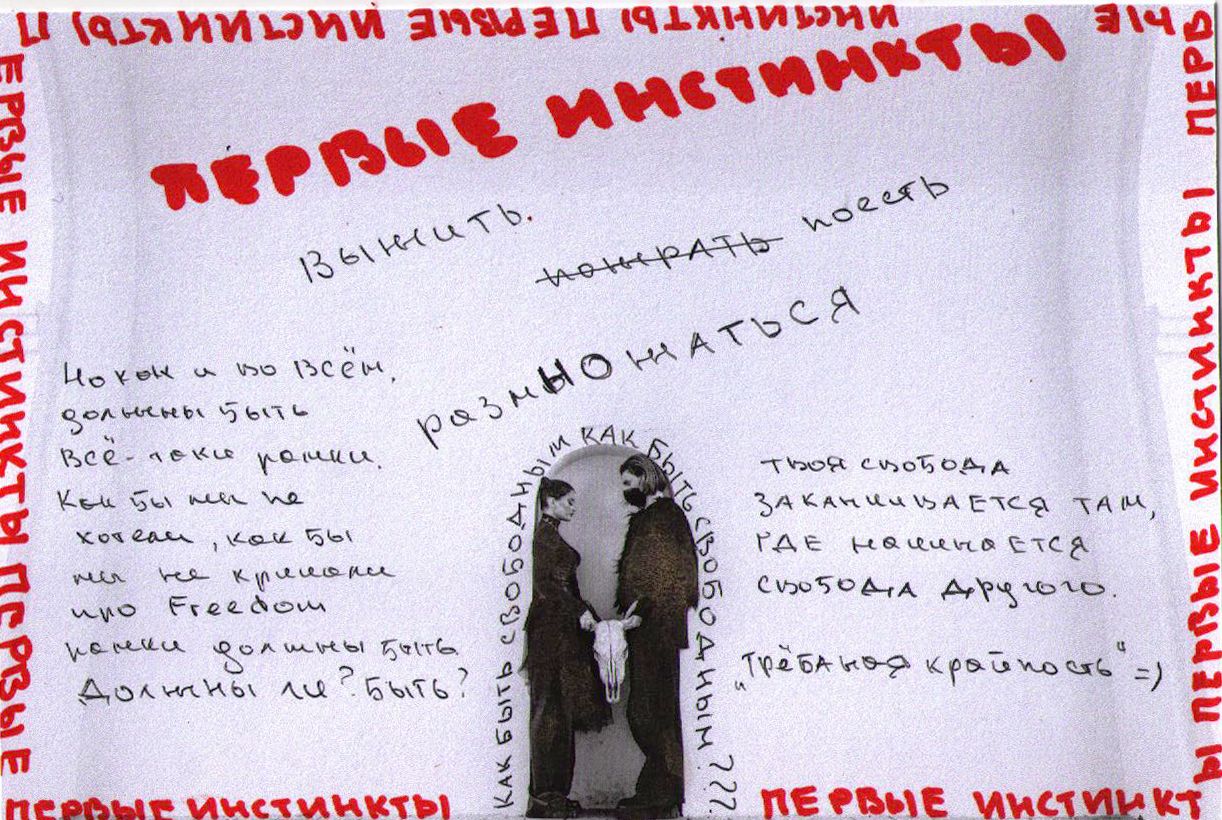 П ПЕРВЫЕ ИНСТИНКТЫ ПЕРВЫЕ ИНСТИНКТЫ
ЫЕ ПЕРВ
ПЕРВЫЕ ИНСТИНКТЫ
выжить.
пожрать поесть
размножаться
Но как и во всём,
должны быть
всё-таки рамки.
Как бы мы не
хотели, как бы
мы не кричали
про Freedom
рамки должны быть
Должны ли? быть?
КАК БЫТЬ СВОБОДНЫМ КАК БЫТЬ СВОБОДНЫМ???
твоя свобода
ЗАКАНЧИВАЕТСЯ ТАМ,
ГДЕ начинаЕТСЯ
свобоДА Другого.
„трёбаная крайность“ =)
ЕРВЫЕ ИНСТИНКТЫ ПЕРВЫЕ
Ы ПЕРВЫЕ ИНСТИНКТЫ ПЕРВ
ПЕРВЫЕ ИНСТИНКТЫ
ПЕРВЫЕ ИНСТИНКТ